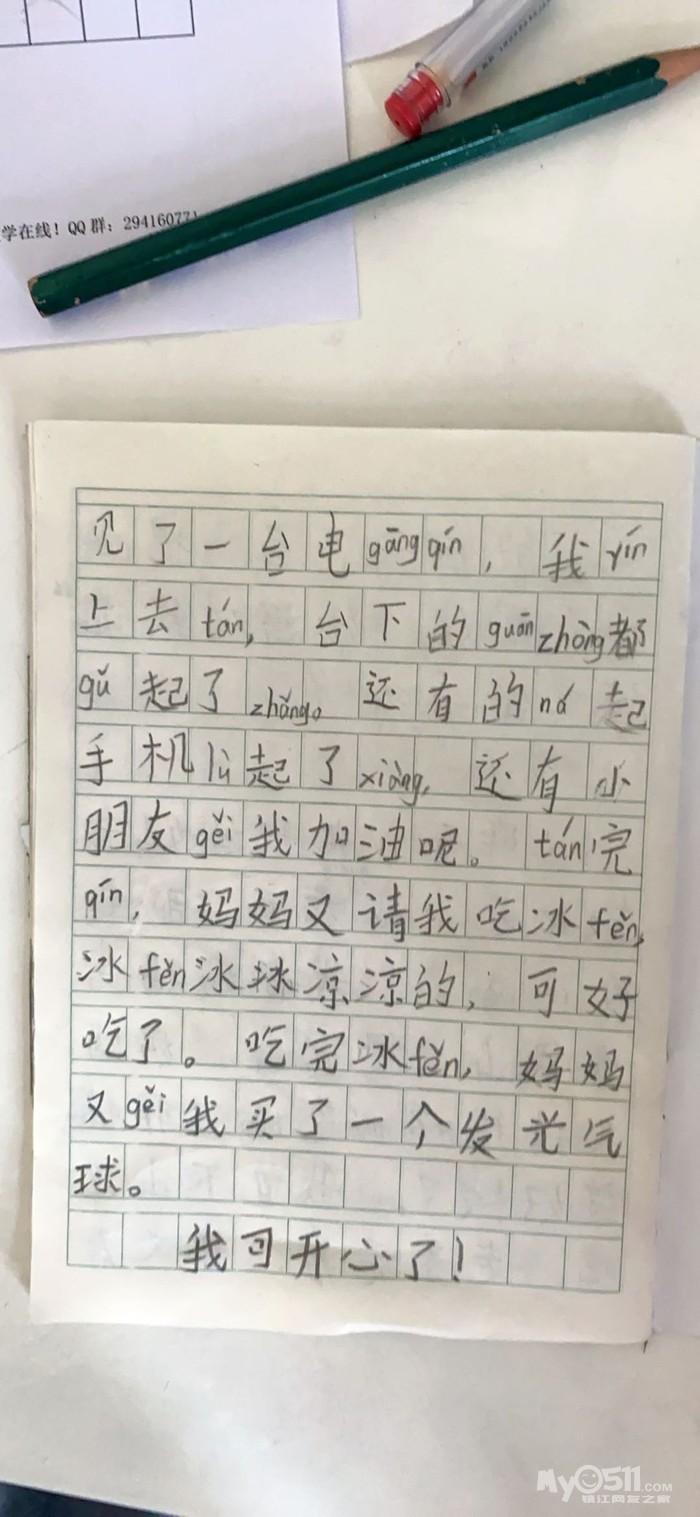 学在线！QQ 群：29416077
见了一台电gāngqín，我yín
上去tán，台下的guānzhòng都
gǔ起了zhǎng。还有的ná起
手机lù起了xiàng，还有小
朋友gěi我加油呢。tán完
qín，妈妈又请我吃冰fěn，
冰fěn冰冰凉凉的，可好
吃了。吃完冰fěn，妈妈
又gěi我买了一个发光气
球。
我可开心了！
My0511.com
镇江网友之家